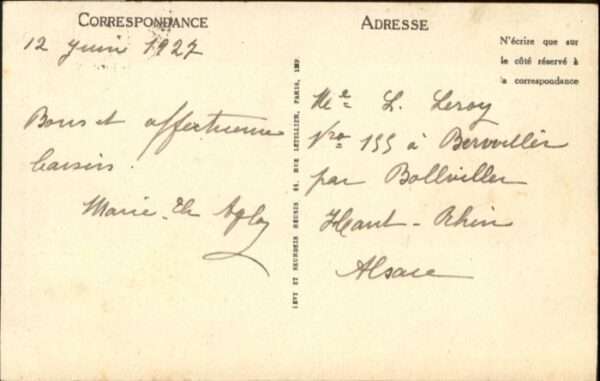 CORRESPONDANCE
12 Juin 1927
Bons et affectueux
baisers.
Marie-Th
ADRESSE
N'écrire que sur
le côté réservé à
la correspondance
LEVY ET NEURDEIN RÉUNIS 44, RUE LETELLIER, PARIS, IMP.
Me L. Leroy
No 155 à Berrwiller
par Bollwiller
Haut-Rhin
Alsace